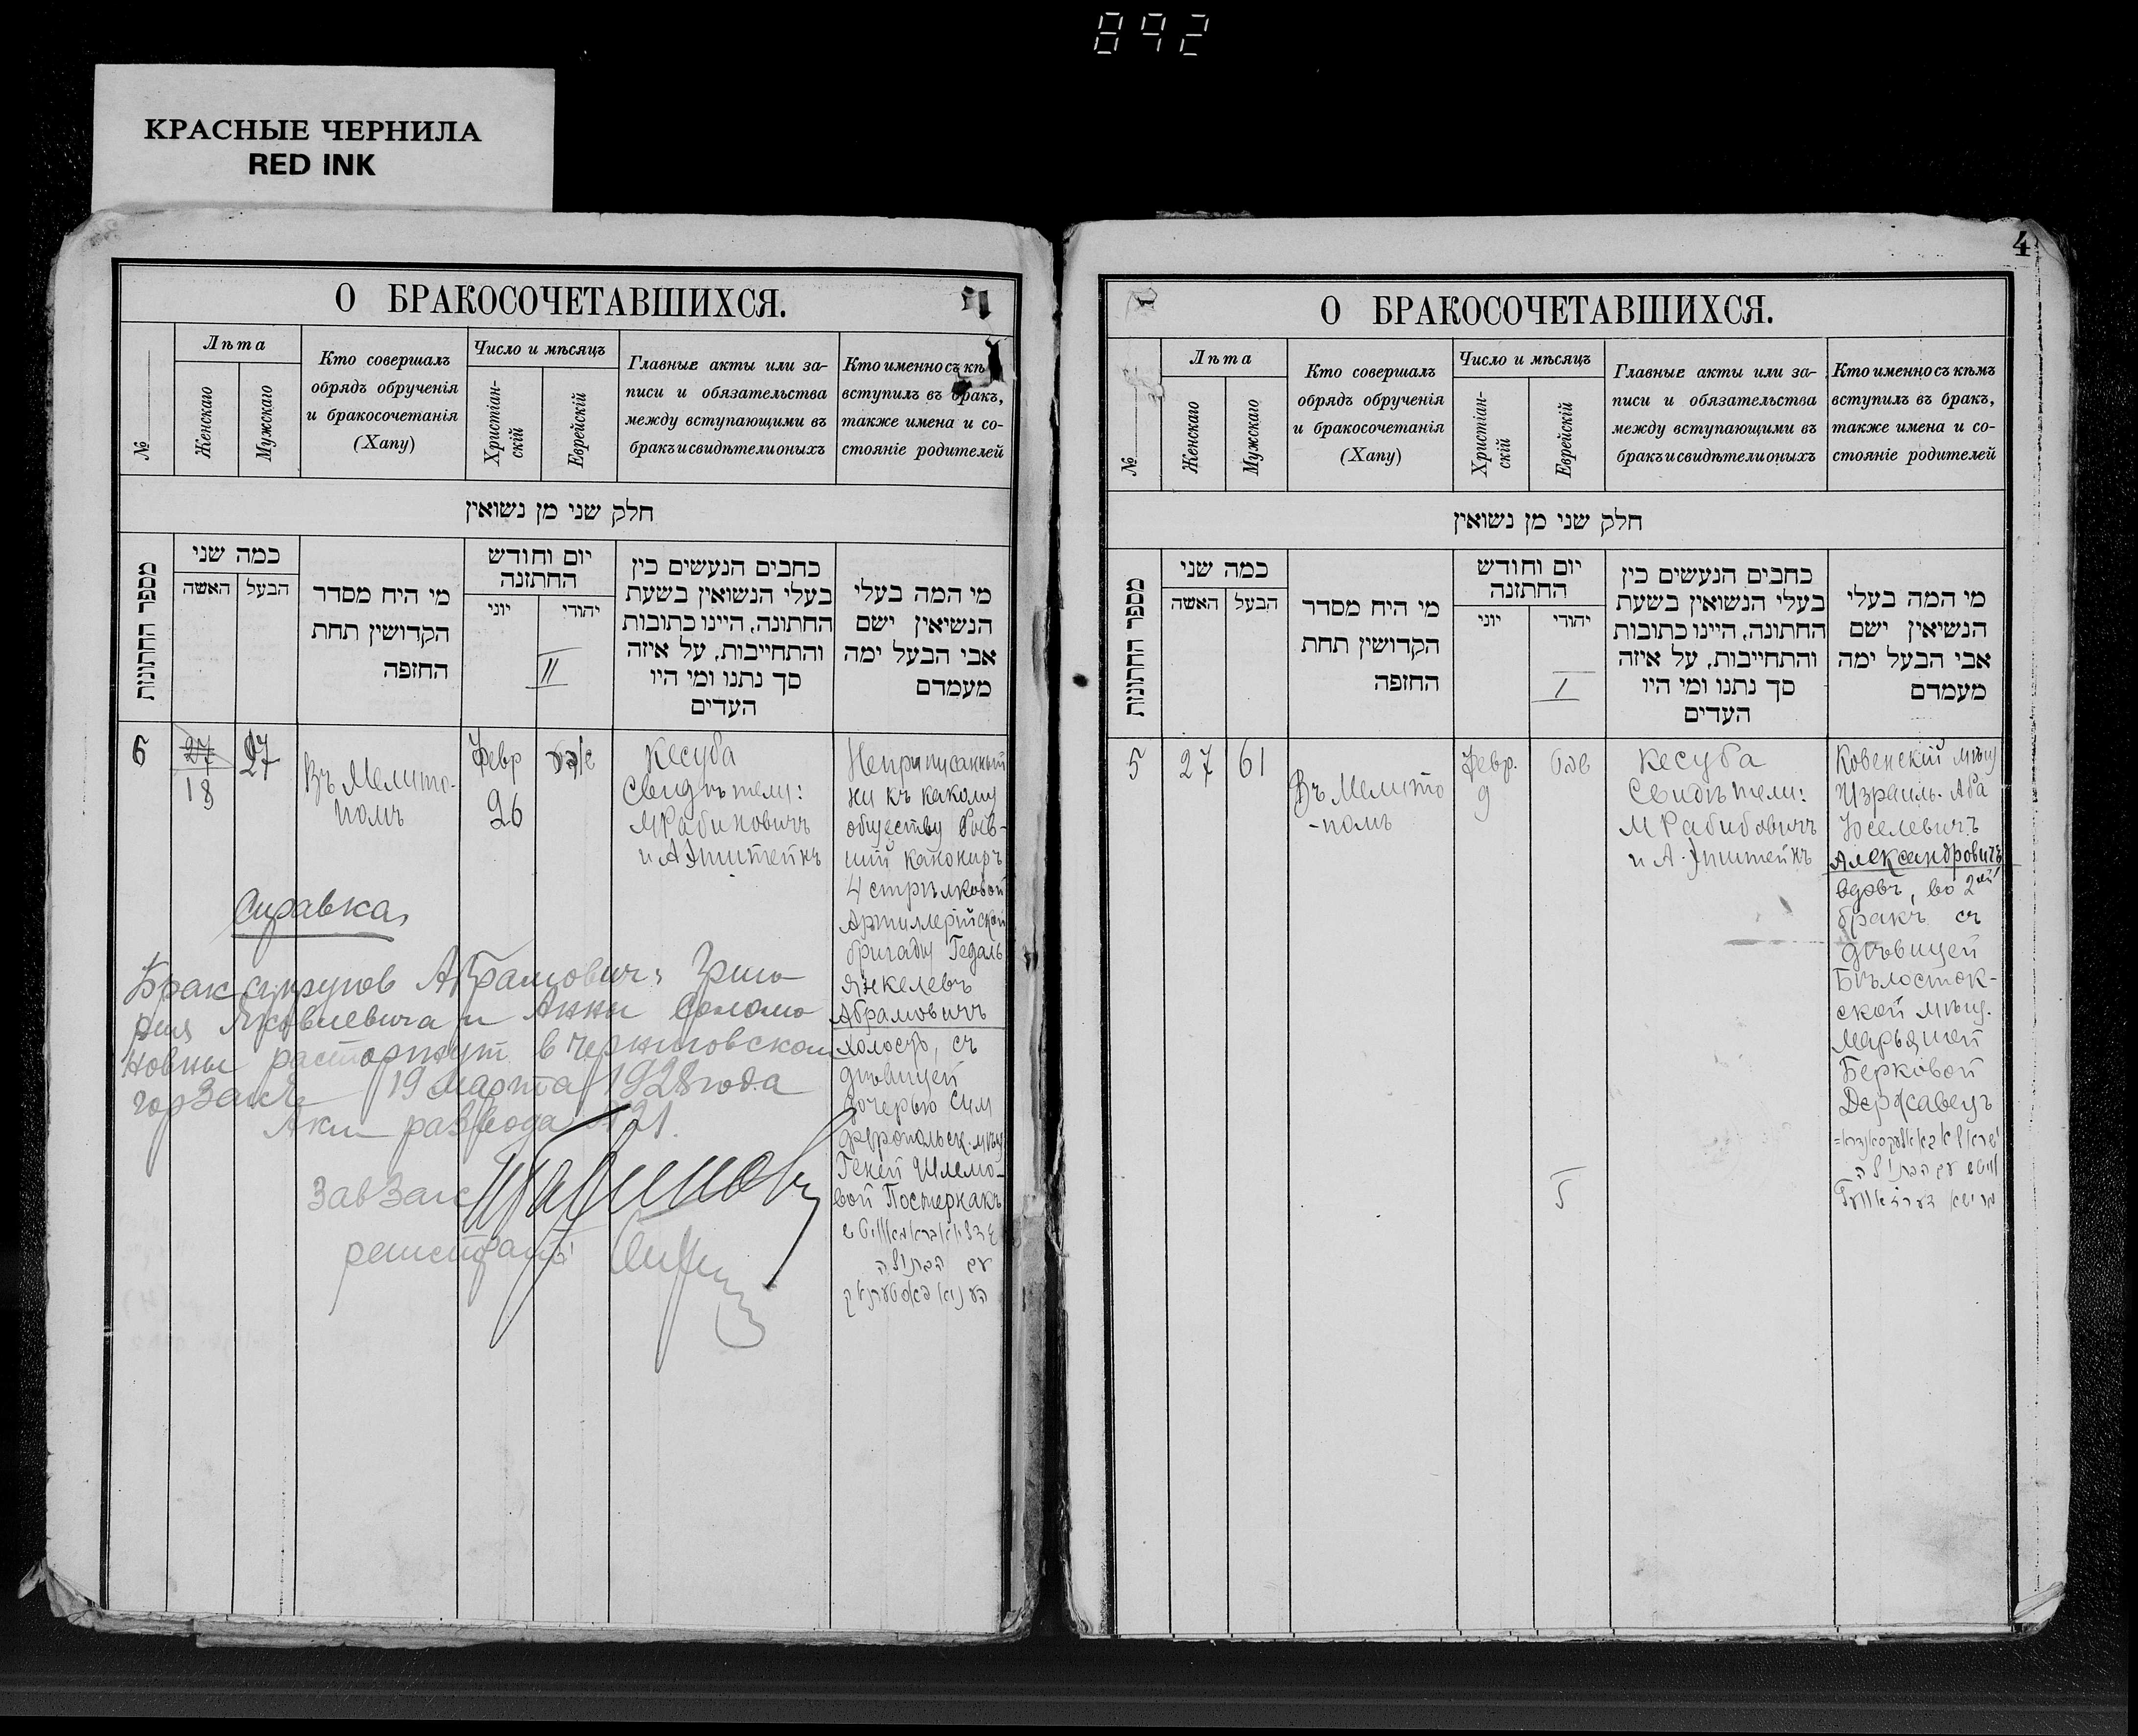 892
КРАСНЫЕ ЧЕРНИЛА
RED INK
О БРАКОСОЧЕТАВШИХСЯ.
№
Лѣта
Женскаго
Мужскаго
Кто совершалъ
обрядъ обрученія
и бракосочетанія
(Хапу)
Число и мѣсяцъ
Христіан-
скій
Еврейскій
Главные акты или за-
писи и обязательства
между вступающими въ
бракъ и свидѣтели оныхъ
Кто именно съ кѣ
вступилъ въ бракъ,
также имена и со-
стояніе родителей
חלק שני מן נשואין
מספר החתונות
כמה שני
האשה
הבעל
מי היח מסדר
הקדושין תחת
החזפה
יום וחודש
החתזנה
יוני
יהודי
II
כחבים הנעשים כין
בעלי הנשואין בשעת
החתונה, היינו כתובות
והתחייבות, על איזה
סך נתנו ומי היו
העדים
מי המה בעלי
הנשיאין ישם
אבי הבעל ימה
מעמדם
6
27
18
27
Въ Мелито-
полѣ
Февр
26
Кесуба
Свидѣтели:
М Рабиновичъ
и А Эпштейнъ
Неприписанный
ни къ какому
обществу бывш-
ій канониръ
4 стрѣлковой
Артиллерійской
бригады Гедаль
Янкелевъ
Абрамовичъ
холостъ, съ
дѣвицей
дочерью Сим
феропольск. мѣщ
Геней Шлемо-
вой Постернакъ
עם הבתולה
Справка
Брак супругов Абрамович: Григо
рия Яковлевича и Анны Соломо
новны расторгнут в Черниговском
горЗагсе 19 марта 1928 года
Акт развода № 21.
ЗавЗагс
регистратор
4
О БРАКОСОЧЕТАВШИХСЯ.
№
Лѣта
Женскаго
Мужскаго
Кто совершалъ
обрядъ обрученія
и бракосочетанія
(Хапу)
Число и мѣсяцъ
Христіан-
скій
Еврейскій
Главные акты или за-
писи и обязательства
между вступающими въ
бракъ и свидѣтели оныхъ
Кто именно съ кѣмъ
вступилъ въ бракъ,
также имена и со-
стояніе родителей
חלק שני מן נשואין
מספר החתונות
כמה שני
האשה
הבעל
מי היח מסדר
הקדושין תחת
החזפה
יום וחודש
החתזנה
יוני
יהודי
I
כחבים הנעשים כין
בעלי הנשואין בשעת
החתונה, היינו כתובות
והתחייבות, על איזה
סך נתנו ומי היו
העדים
מי המה בעלי
הנשיאין ישם
אבי הבעל ימה
מעמדם
5
27
61
Въ Мелито
-полѣ
Февр.
9
שבט
Кесуба
Свидѣтели:
М Рабибовичъ
и А. Эпштейнъ
Ковенскій мѣщ
Израиль-Аба
Іоселевичъ
Александровичъ
вдовъ, во 2ой
бракъ съ
дѣвицей
Бѣлосток-
ской мѣщ.
Марьяшей
Берковой
Державецъ
עם הבתולה